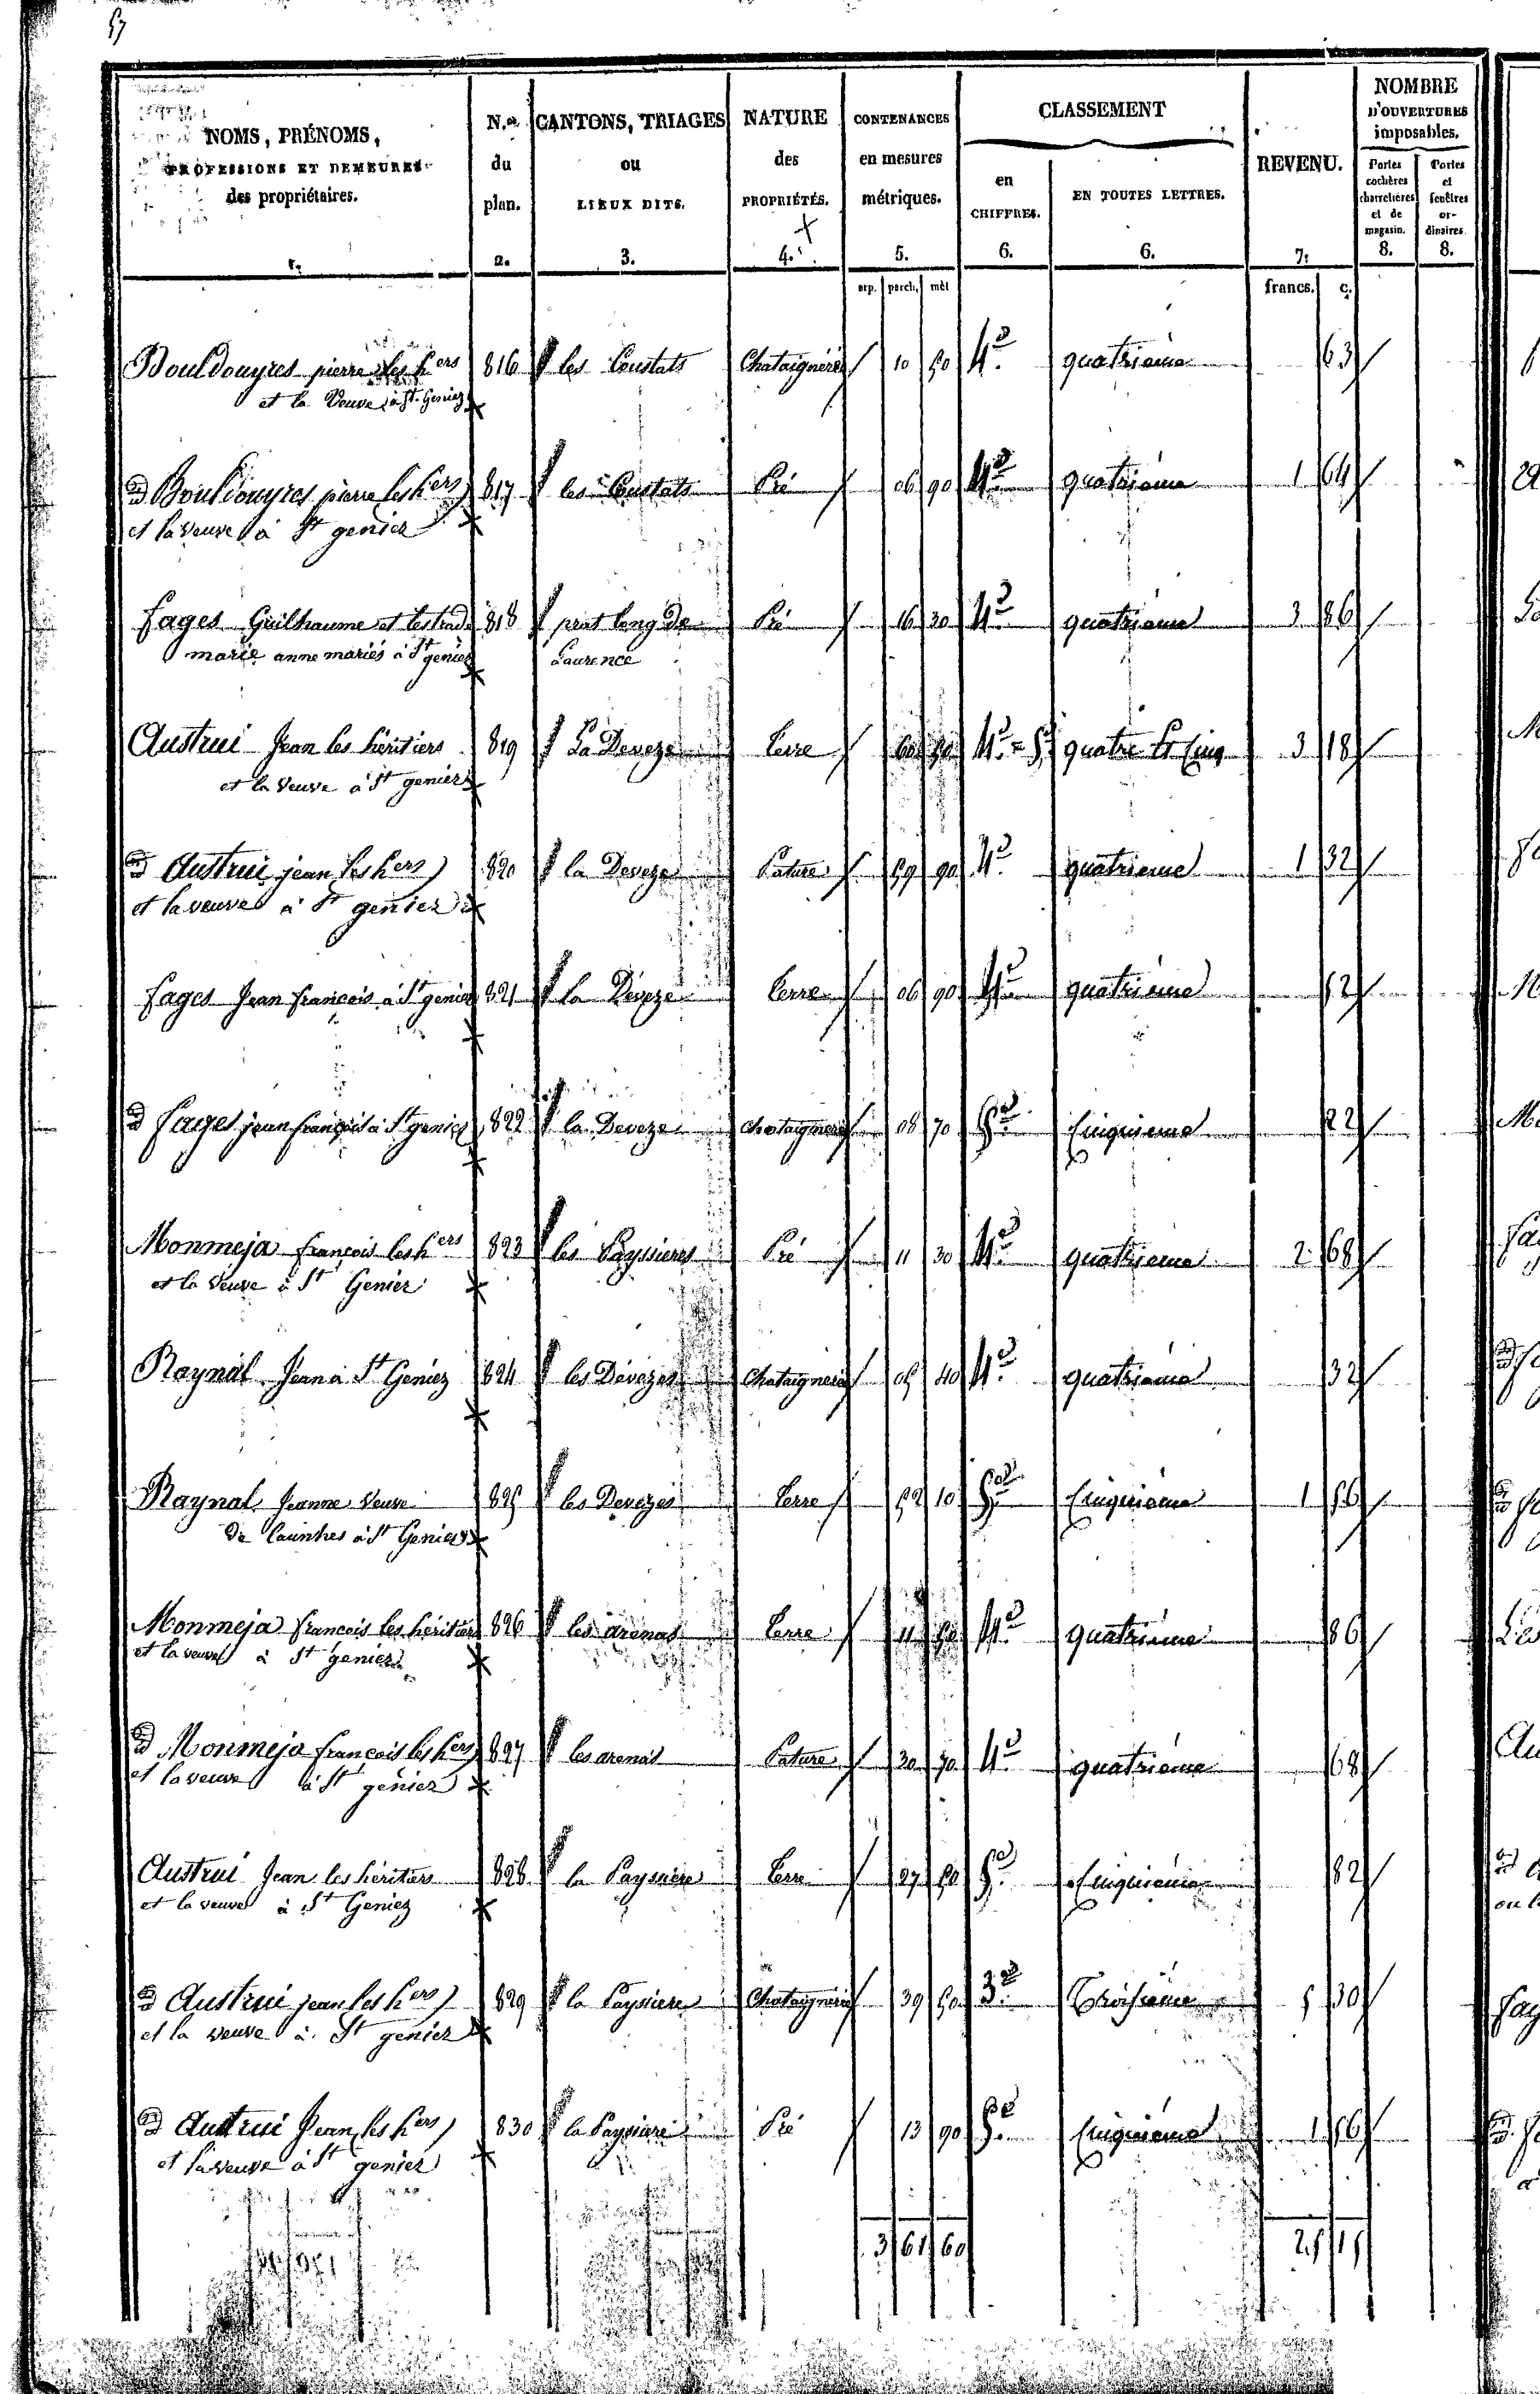 57
NOMS, PRÉNOMS, PROFESSIONS ET DEMEURES des propriétaires. 1.
N.os du plan. 2.
CANTONS, TRIAGES ou LIEUX DITS. 3.
NATURE des PROPRIÉTÉS. 4.
CONTENANCES en mesures métriques. 5.
CLASSEMENT
en CHIFFRES. 6.
EN TOUTES LETTRES. 6.
REVENU. 7.
NOMBRE D'OUVERTURES imposables.
Portes cochères charretières et de magasin. 8.
Portes et fenêtres ordinaires. 8.
arp. perch. mèt francs. c.
Bouldouyres pierre les hers 816 les Coustats Chataigneraie 10 50 4e quatrieme 63
et la Veuve à St. Geniez
Bouldouyres pierre les hers 817 les Coustats Pré 06 90 4e quatrieme 1 64
et la veuve à St genier
fages Guilhaume et 818 prat long de Pré 16 30 4e quatrieme 3 86
marie anne mariés à St genier Laurence
Austrui Jean les héritiers 819 La Deveze Terre 4e = 5e quatre et Cinq 3 18
et la veuve à St genier
Austrui jean les hers 820 la Deveze Pature 59 90 4e quatrieme 1 32
et la veuve à St genier
fages Jean françois à St genier 821 la Deveze Terre 06 90 4e quatrieme 52
fages jean françois à St genier 822 la Deveze Chataigneraie 08 70 5e Cinquieme 22
Monmeja françois les hers 823 les Payssieres Pré 11 30 4e quatrieme 2 68
et la Veuve à St Genier
Raynal Jean à St Geniez 824 les Devezes Chataigneraie 05 40 4e quatrieme 32
Raynal Jeanne Veuve 825 les Devezes Terre 52 10 5e Cinquieme 1 56
de à St Genier
Monmeja françois les héritiers 826 les arenas Terre 11 50 4e quatrieme 86
et la veuve à St genier
Monmeja françois les hers 827 les arenas Pature 30 70 4e quatrieme 68
et la veuve à St genier
Austrui Jean les héritiers 828 la Payssiere Terre 27 50 5e Cinquieme 82
et la veuve à St Geniez
Austrui jean les hers 829 la Payssiere Chataigneraie 39 50 3e Troisieme 5 30
et la veuve à St genier
Austrui Jean les hers 830 la Payssiere Pré 13 90 5e Cinquieme 1 56
et la veuve à St genier
3 61 60 25 15